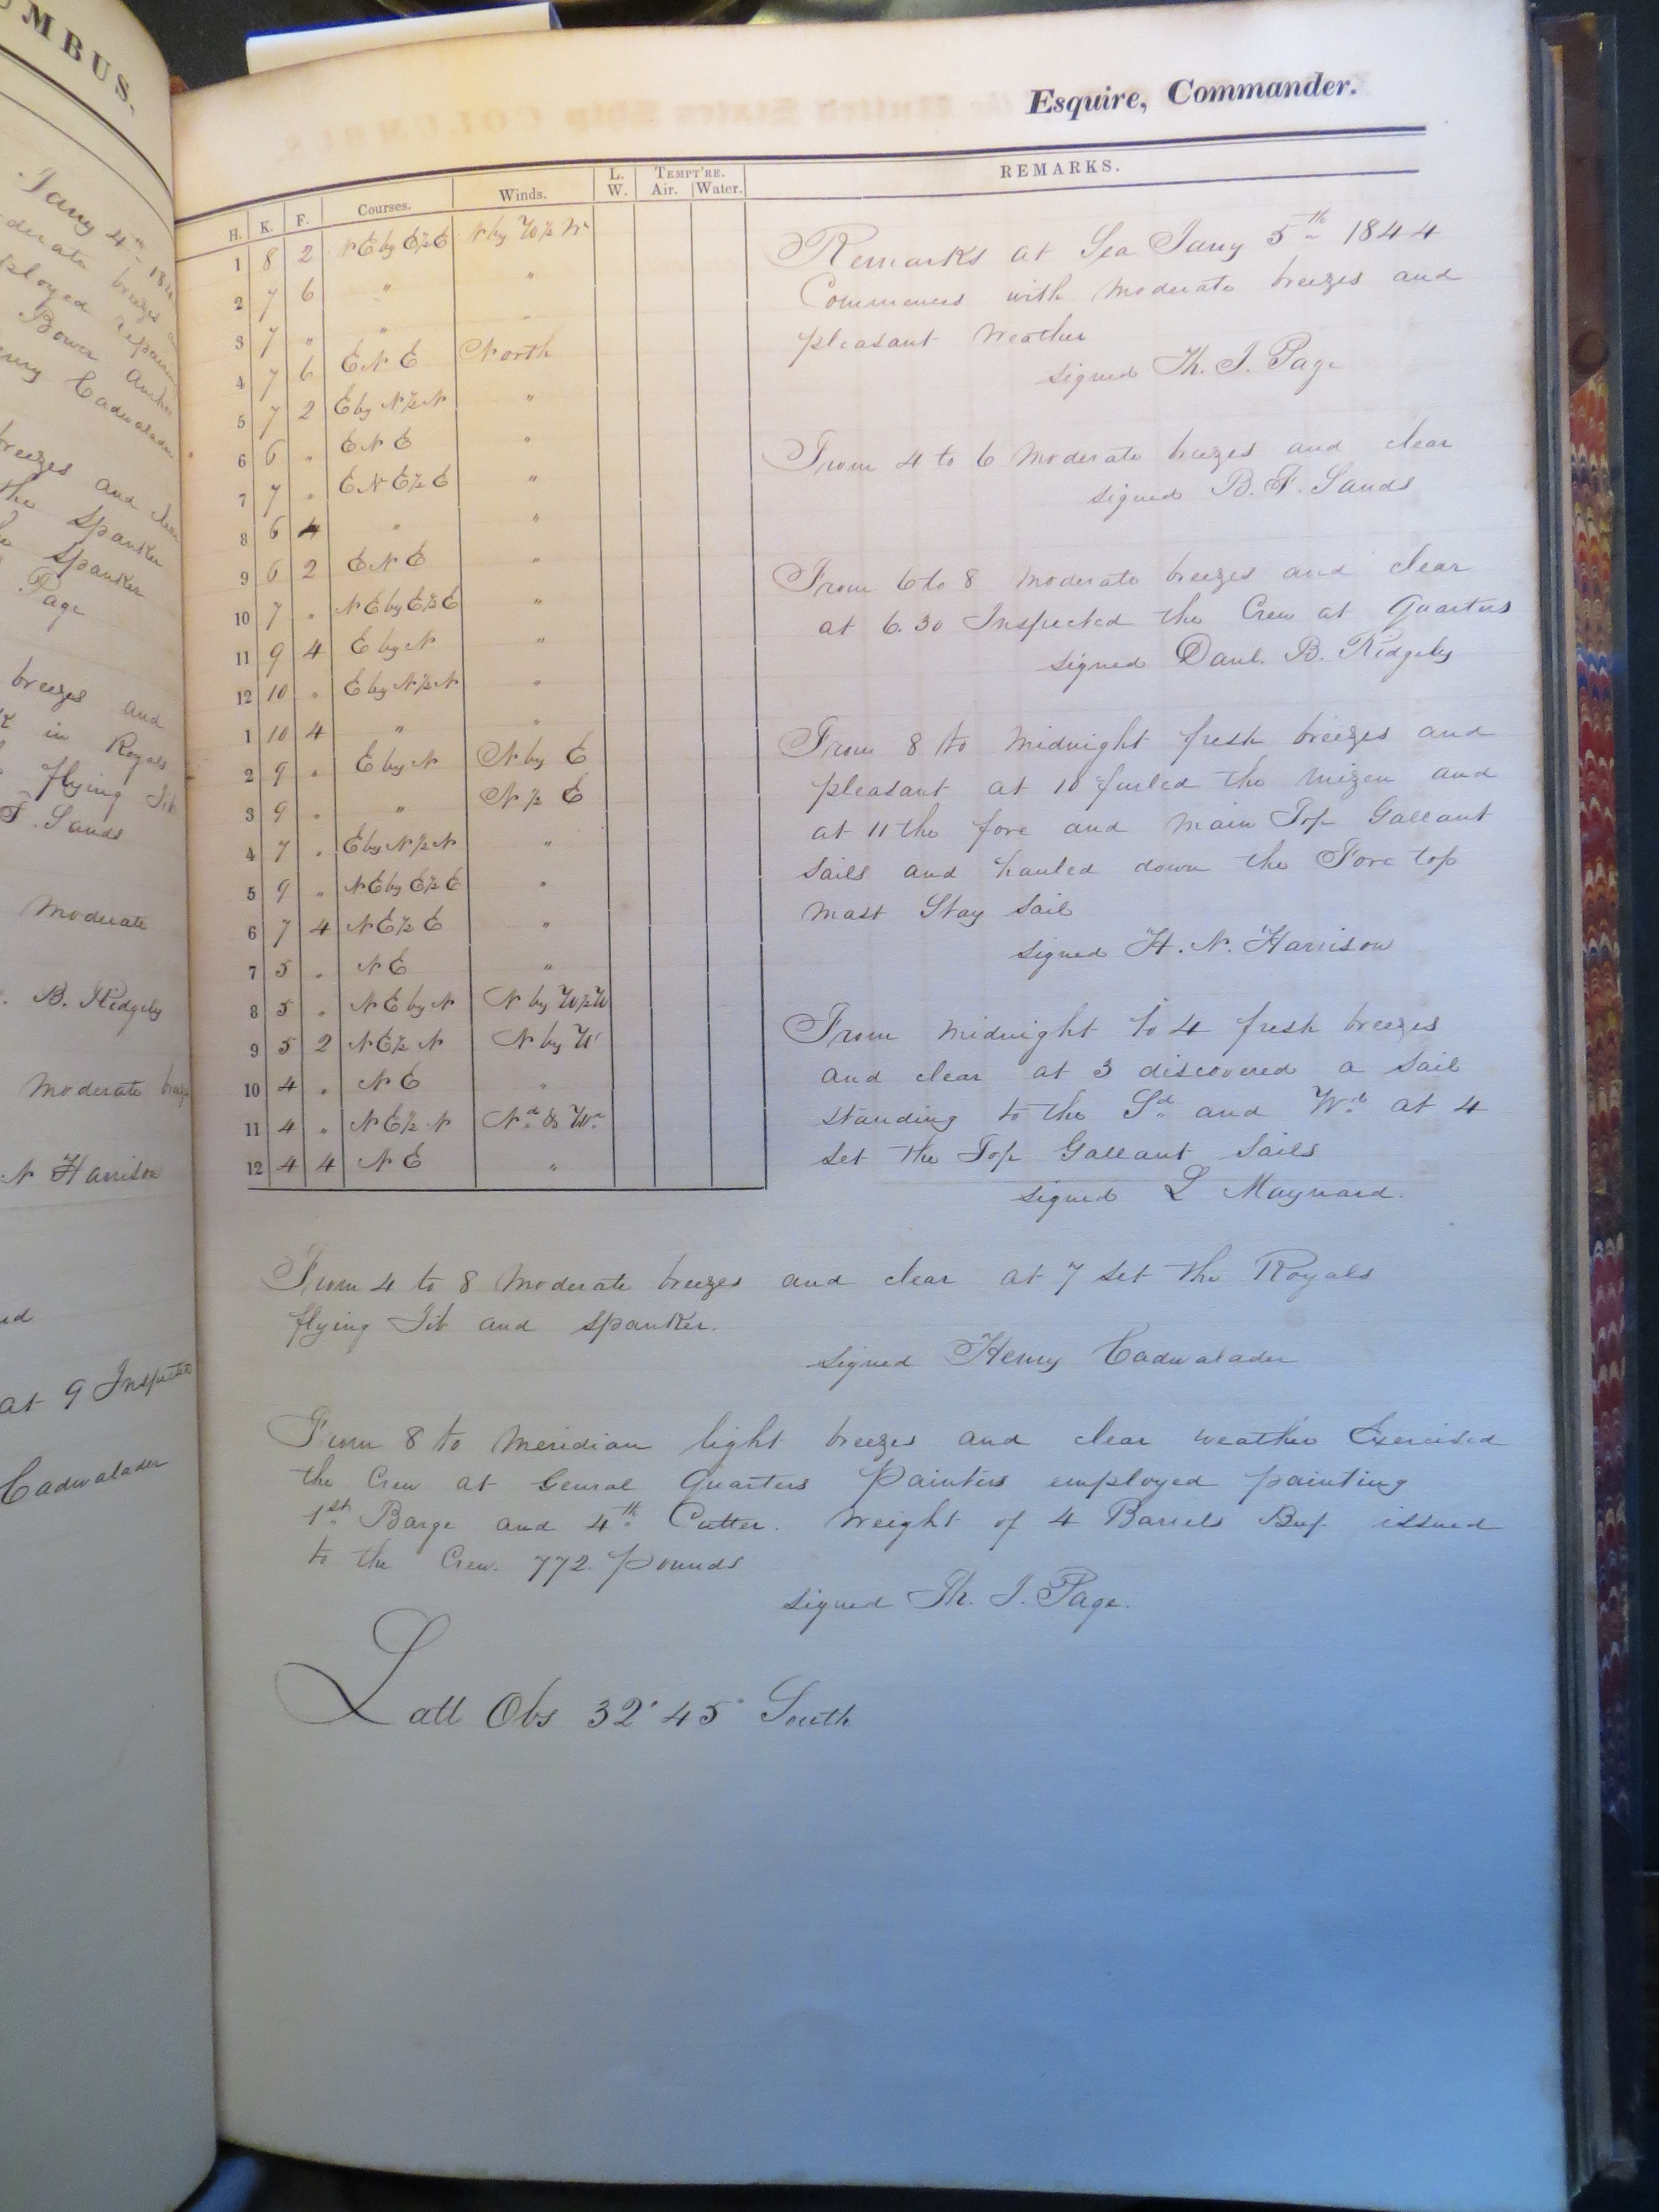 UMBUS.
Jany 4th 184
derate breezes a
ployed repairing
Bower Anchor
enry Cadwalader
breezes and clear
the Spanker
Spanker
Page
breezes and
in Royals
flying Jib
F. Sands
Moderate
B. Ridgely
Moderate breeze
N Harrison
ed
at 9 Inspected
Cadwalader
Esquire, Commander.
H. K. F. Courses. Winds. L. W. TEMPT'RE. Air. Water. REMARKS.
1 8 2 N E by E ½ E N by W ½ W
2 7 6 " "
3 7 " " "
4 7 6 E N E North
5 7 2 E by N ½ N "
6 6 " E N E "
7 7 " E N E ½ E "
8 6 4 " "
9 6 2 E N E "
10 7 " N E by E ½ E "
11 9 4 E by N "
12 10 " E by N ½ N "
1 10 4 " "
2 9 " E by N N by E
3 9 " " N ½ E
4 7 " E by N ½ N "
5 9 " N E by E ½ E "
6 7 4 N E ½ E "
7 5 " N E "
8 5 " N E by N N by W ½ W
9 5 2 N E ½ N N by W
10 4 " N E "
11 4 " N E ½ N Nd & Wd
12 4 4 N E "
Remarks at Sea Jany 5th 1844
Commences with moderate breezes and
pleasant weather
signed Th. J. Page
From 4 to 6 Moderate breezes and clear
signed B. F. Sands
From 6 to 8 moderate breezes and clear
at 6.30 Inspected the Crew at Quarters
signed Danl. B. Ridgely
From 8 to midnight fresh breezes and
pleasant at 10 furled the mizen and
at 11 the fore and main Top Gallant
sails and hauled down the Fore top
mast Stay sail
signed H. N. Harrison
From midnight to 4 fresh breezes
and clear at 3 discovered a sail
standing to the Sd and Wd at 4
set the Top Gallant sails
signed L Maynard.
From 4 to 8 Moderate breezes and clear at 7 set the Royals
flying Jib and spanker.
signed Henry Cadwalader
From 8 to Meridian light breezes and clear weather Exercised
the Crew at Genral Quarters Painters employed painting
1st Barge and 4th Cutter. Weight of 4 Barrels Beef issued
to the Crew. 772 pounds
signed Th. J. Page.
Latt Obs 32° 45" South